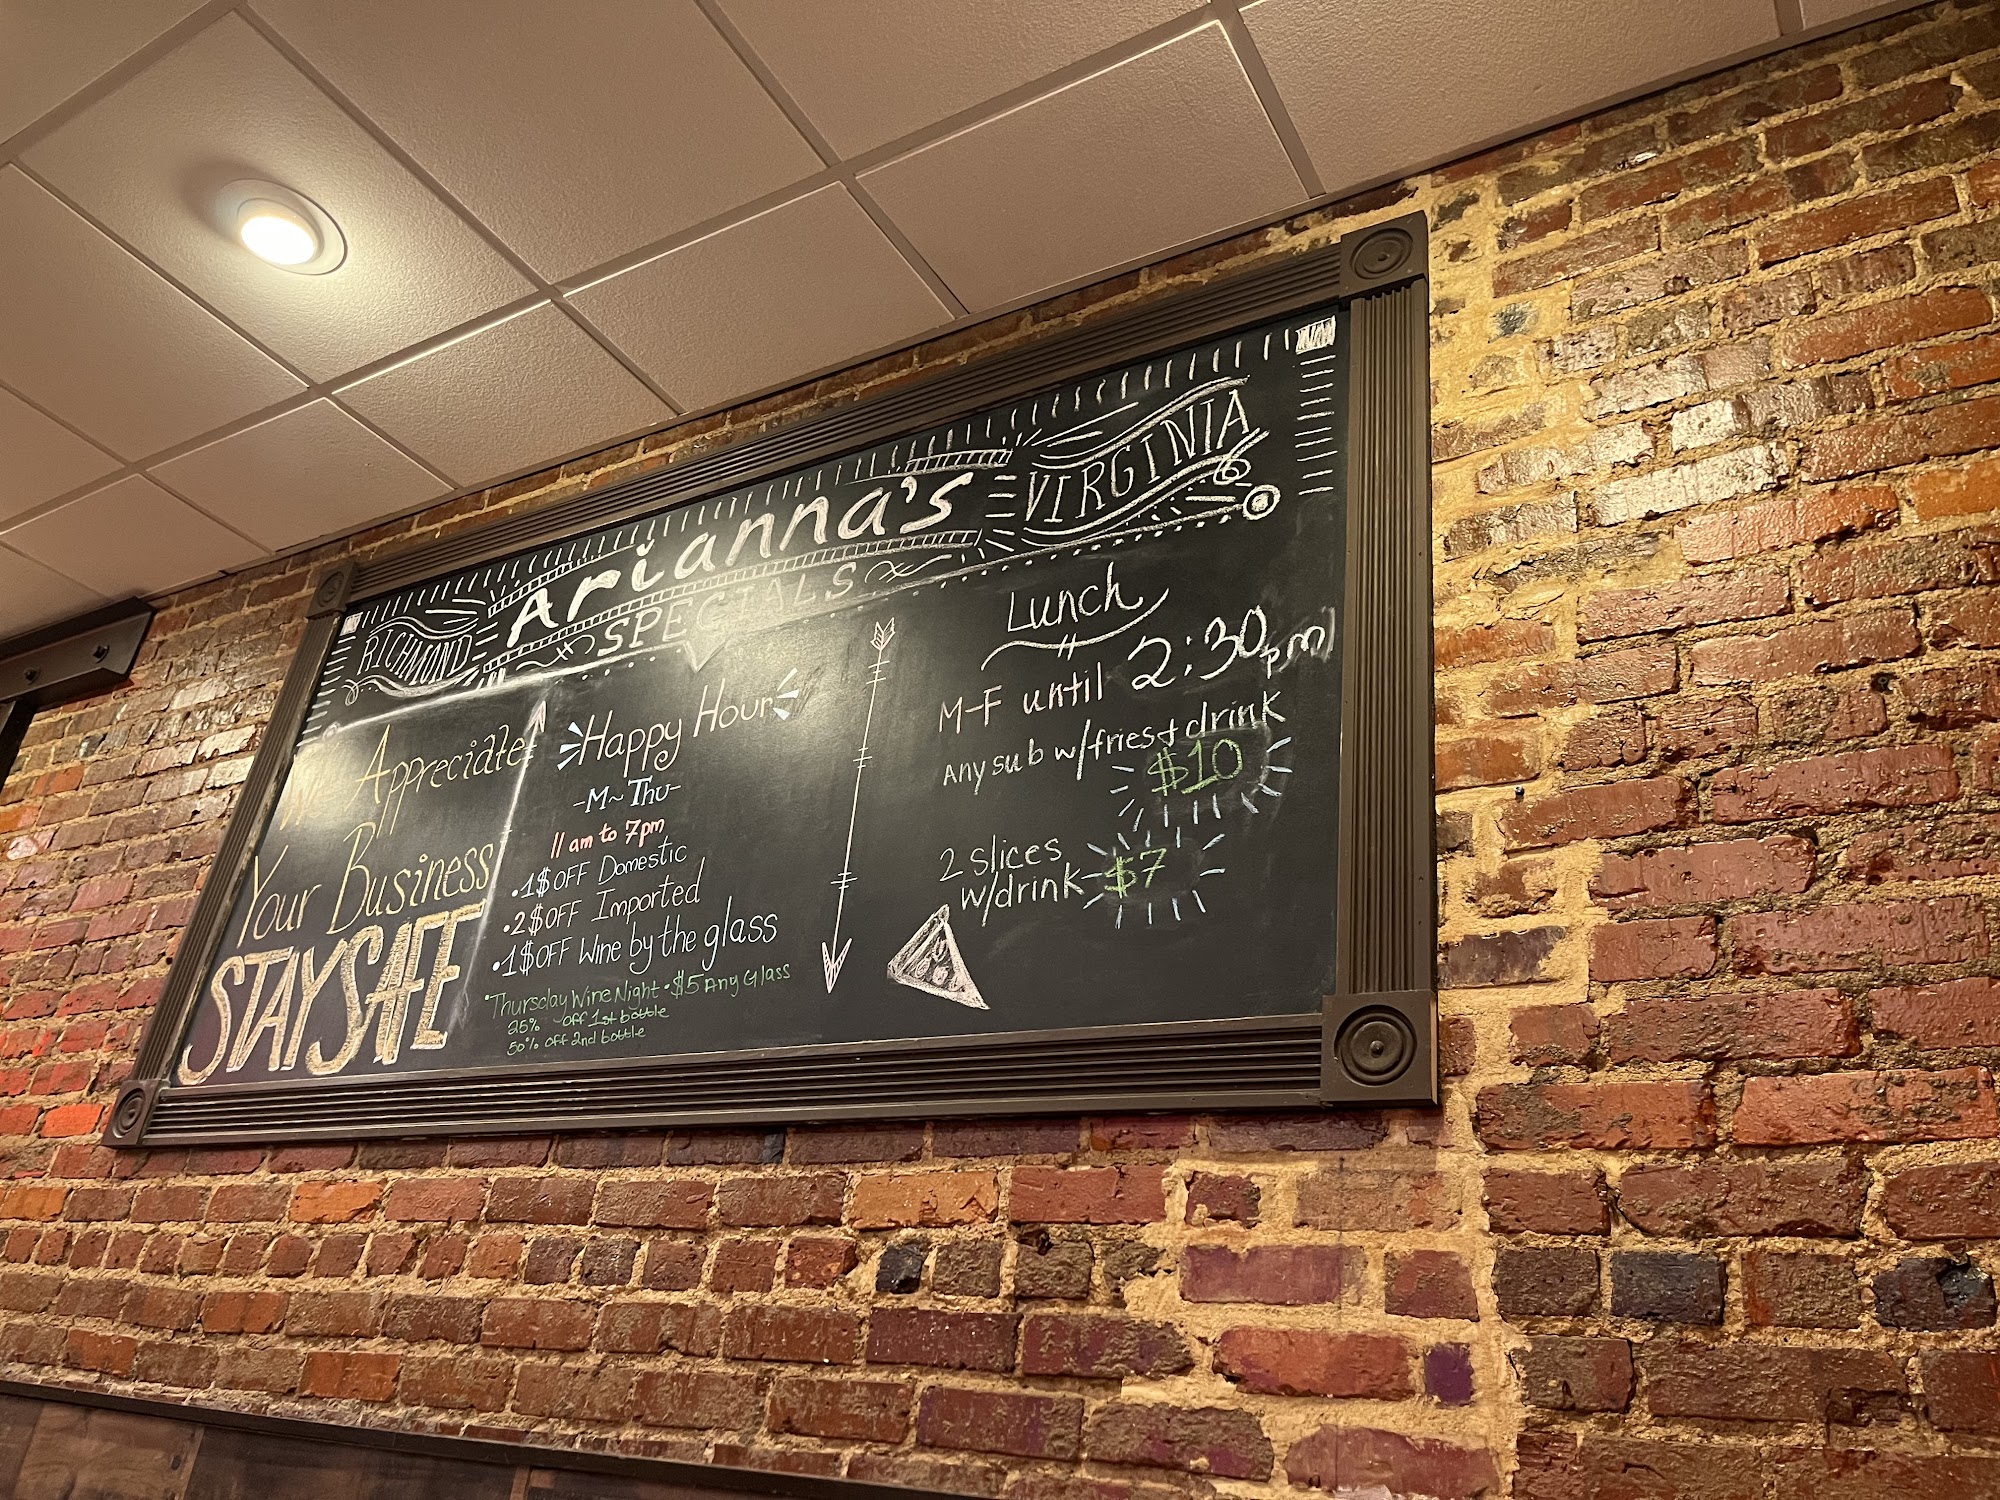 RICHMOND
Arianna's
VIRGINIA
SPECIALS
We Appreciate
Your Business
STAY SAFE
Happy Hour
-M~Thu-
11 am to 7pm
•1$OFF Domestic
•2$OFF Imported
•1$OFF Wine by the glass
•Thursday Wine Night •$5 Any Glass
25% off 1st bottle
50% off 2nd bottle
Lunch
M-F until 2:30pm
Any sub w/fries & drink
$10
2 slices
w/drink $7